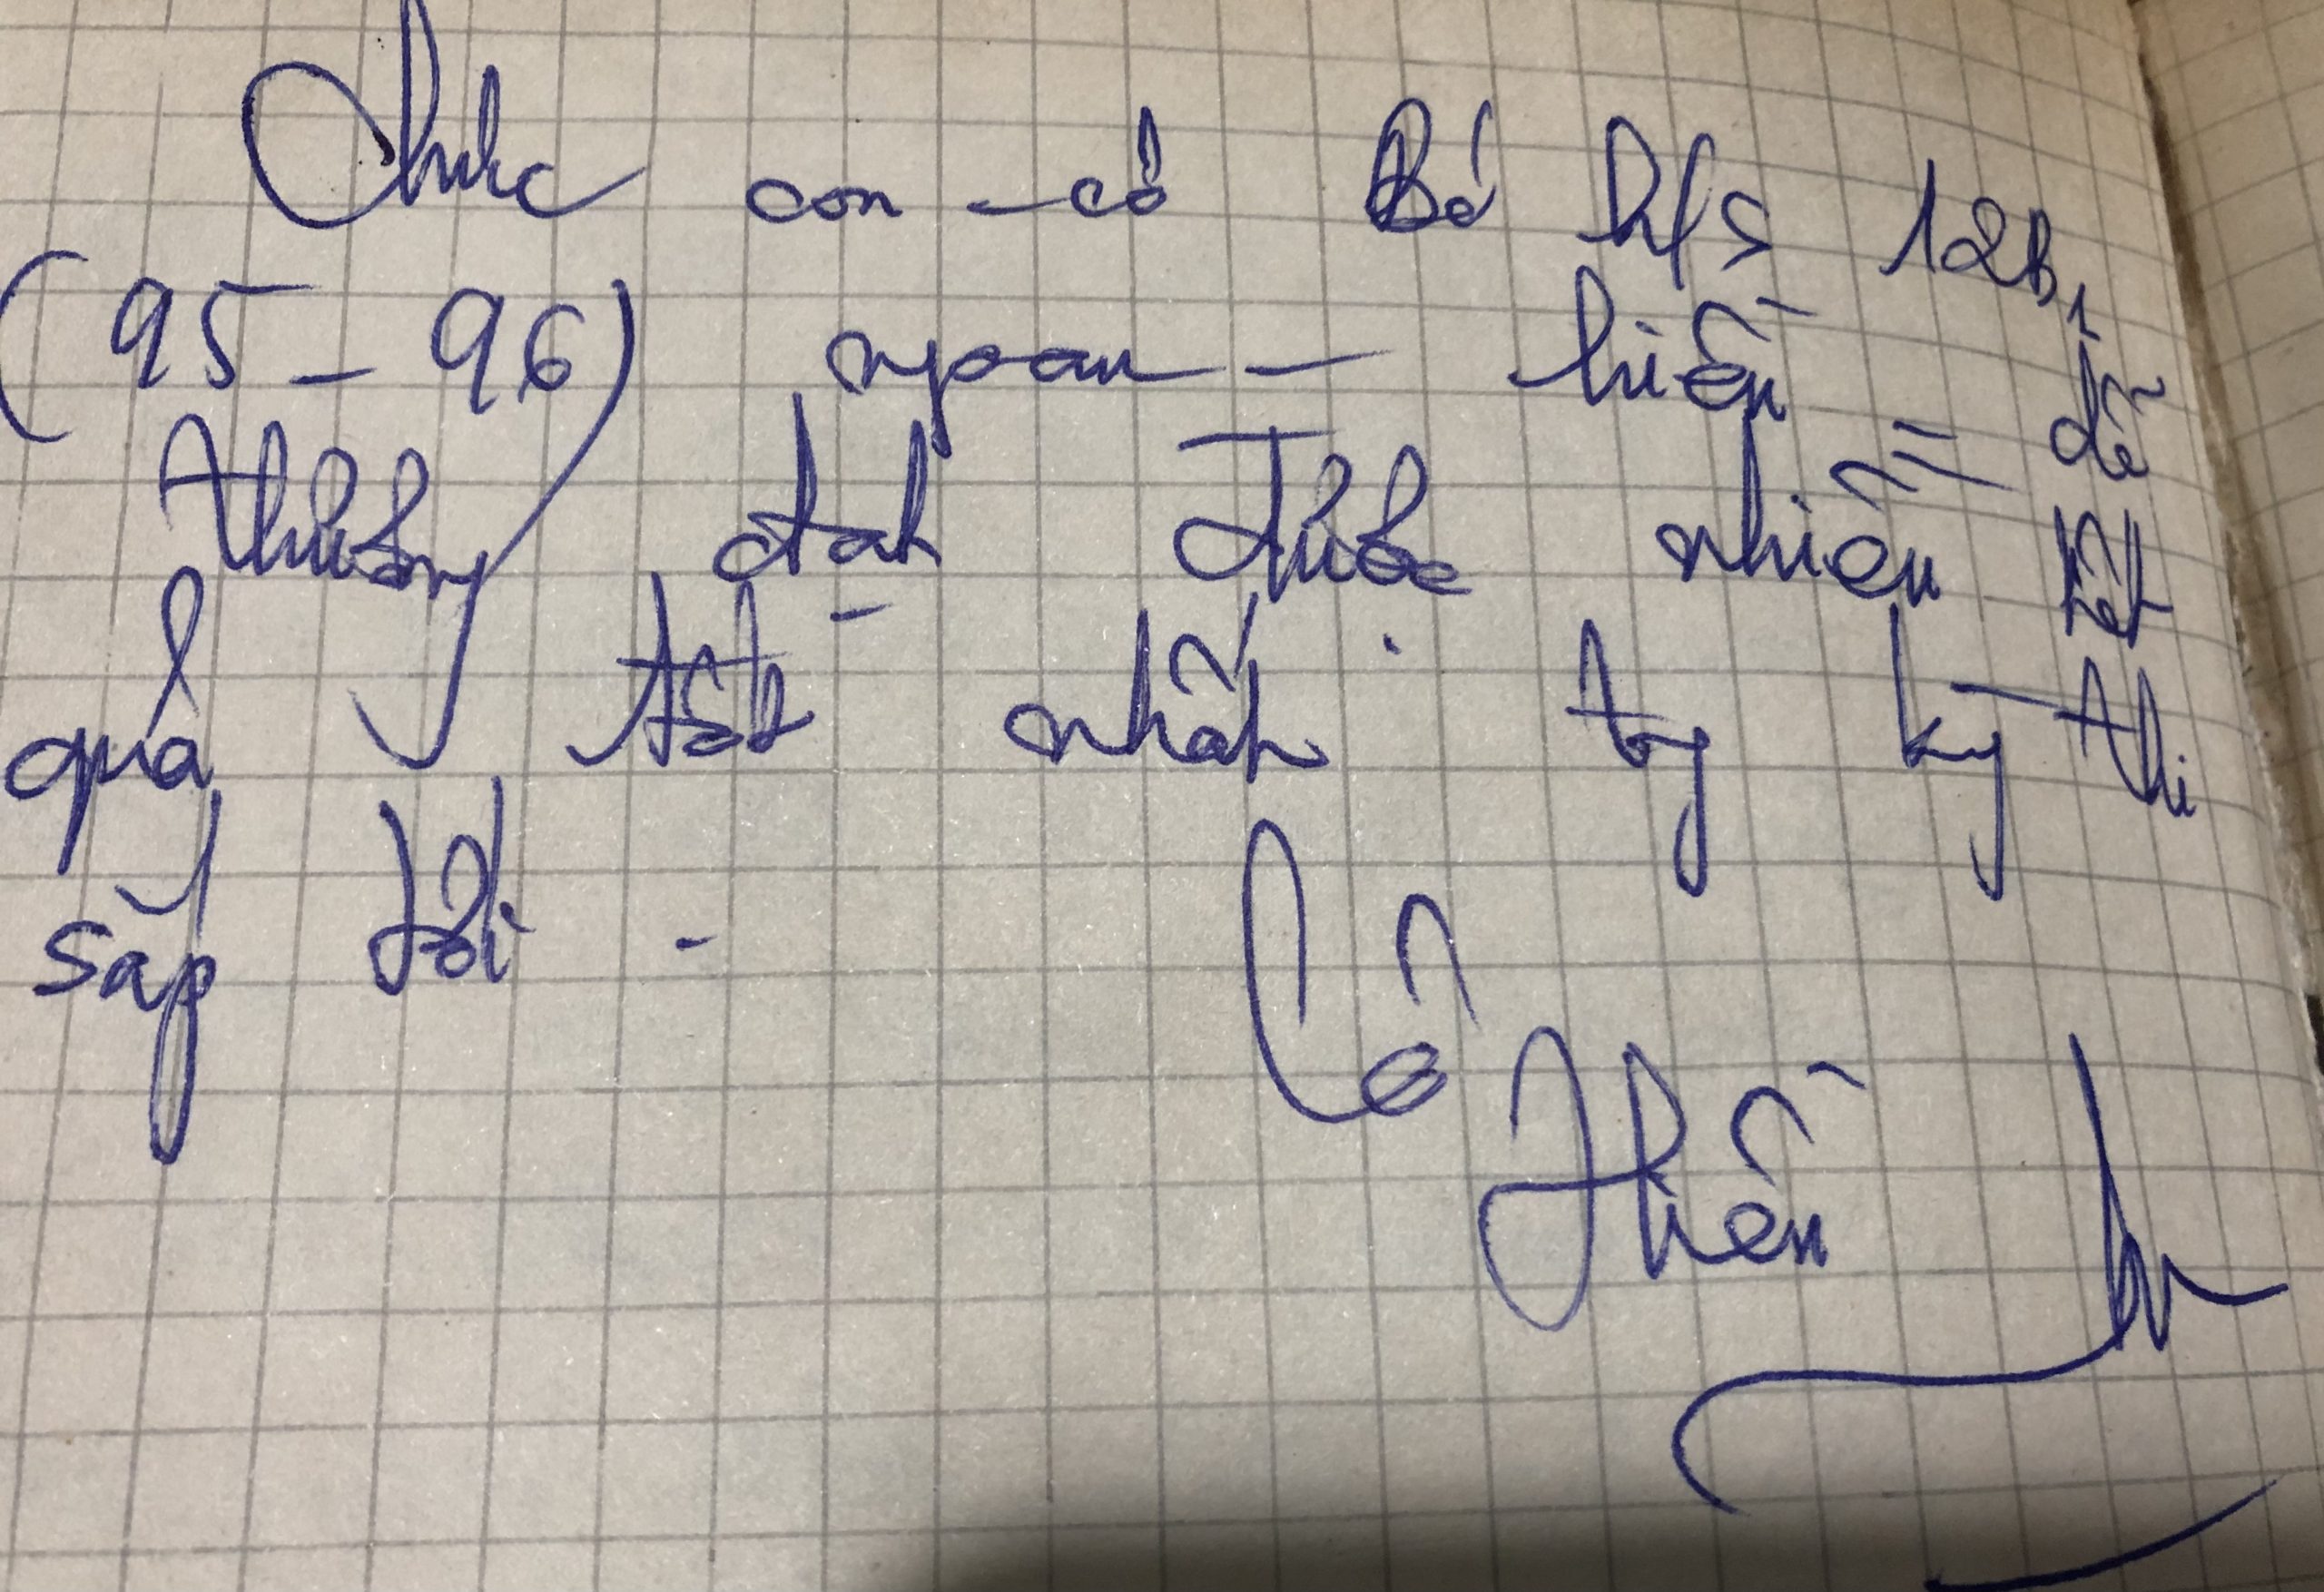 Chúc con - cô Bé h/s 12B1
(95 - 96) ngoan - hiền - dễ
thương đạt được nhiều kết
quả tốt nhất tg kỳ thi
sắp tới -
Cô
Hiền